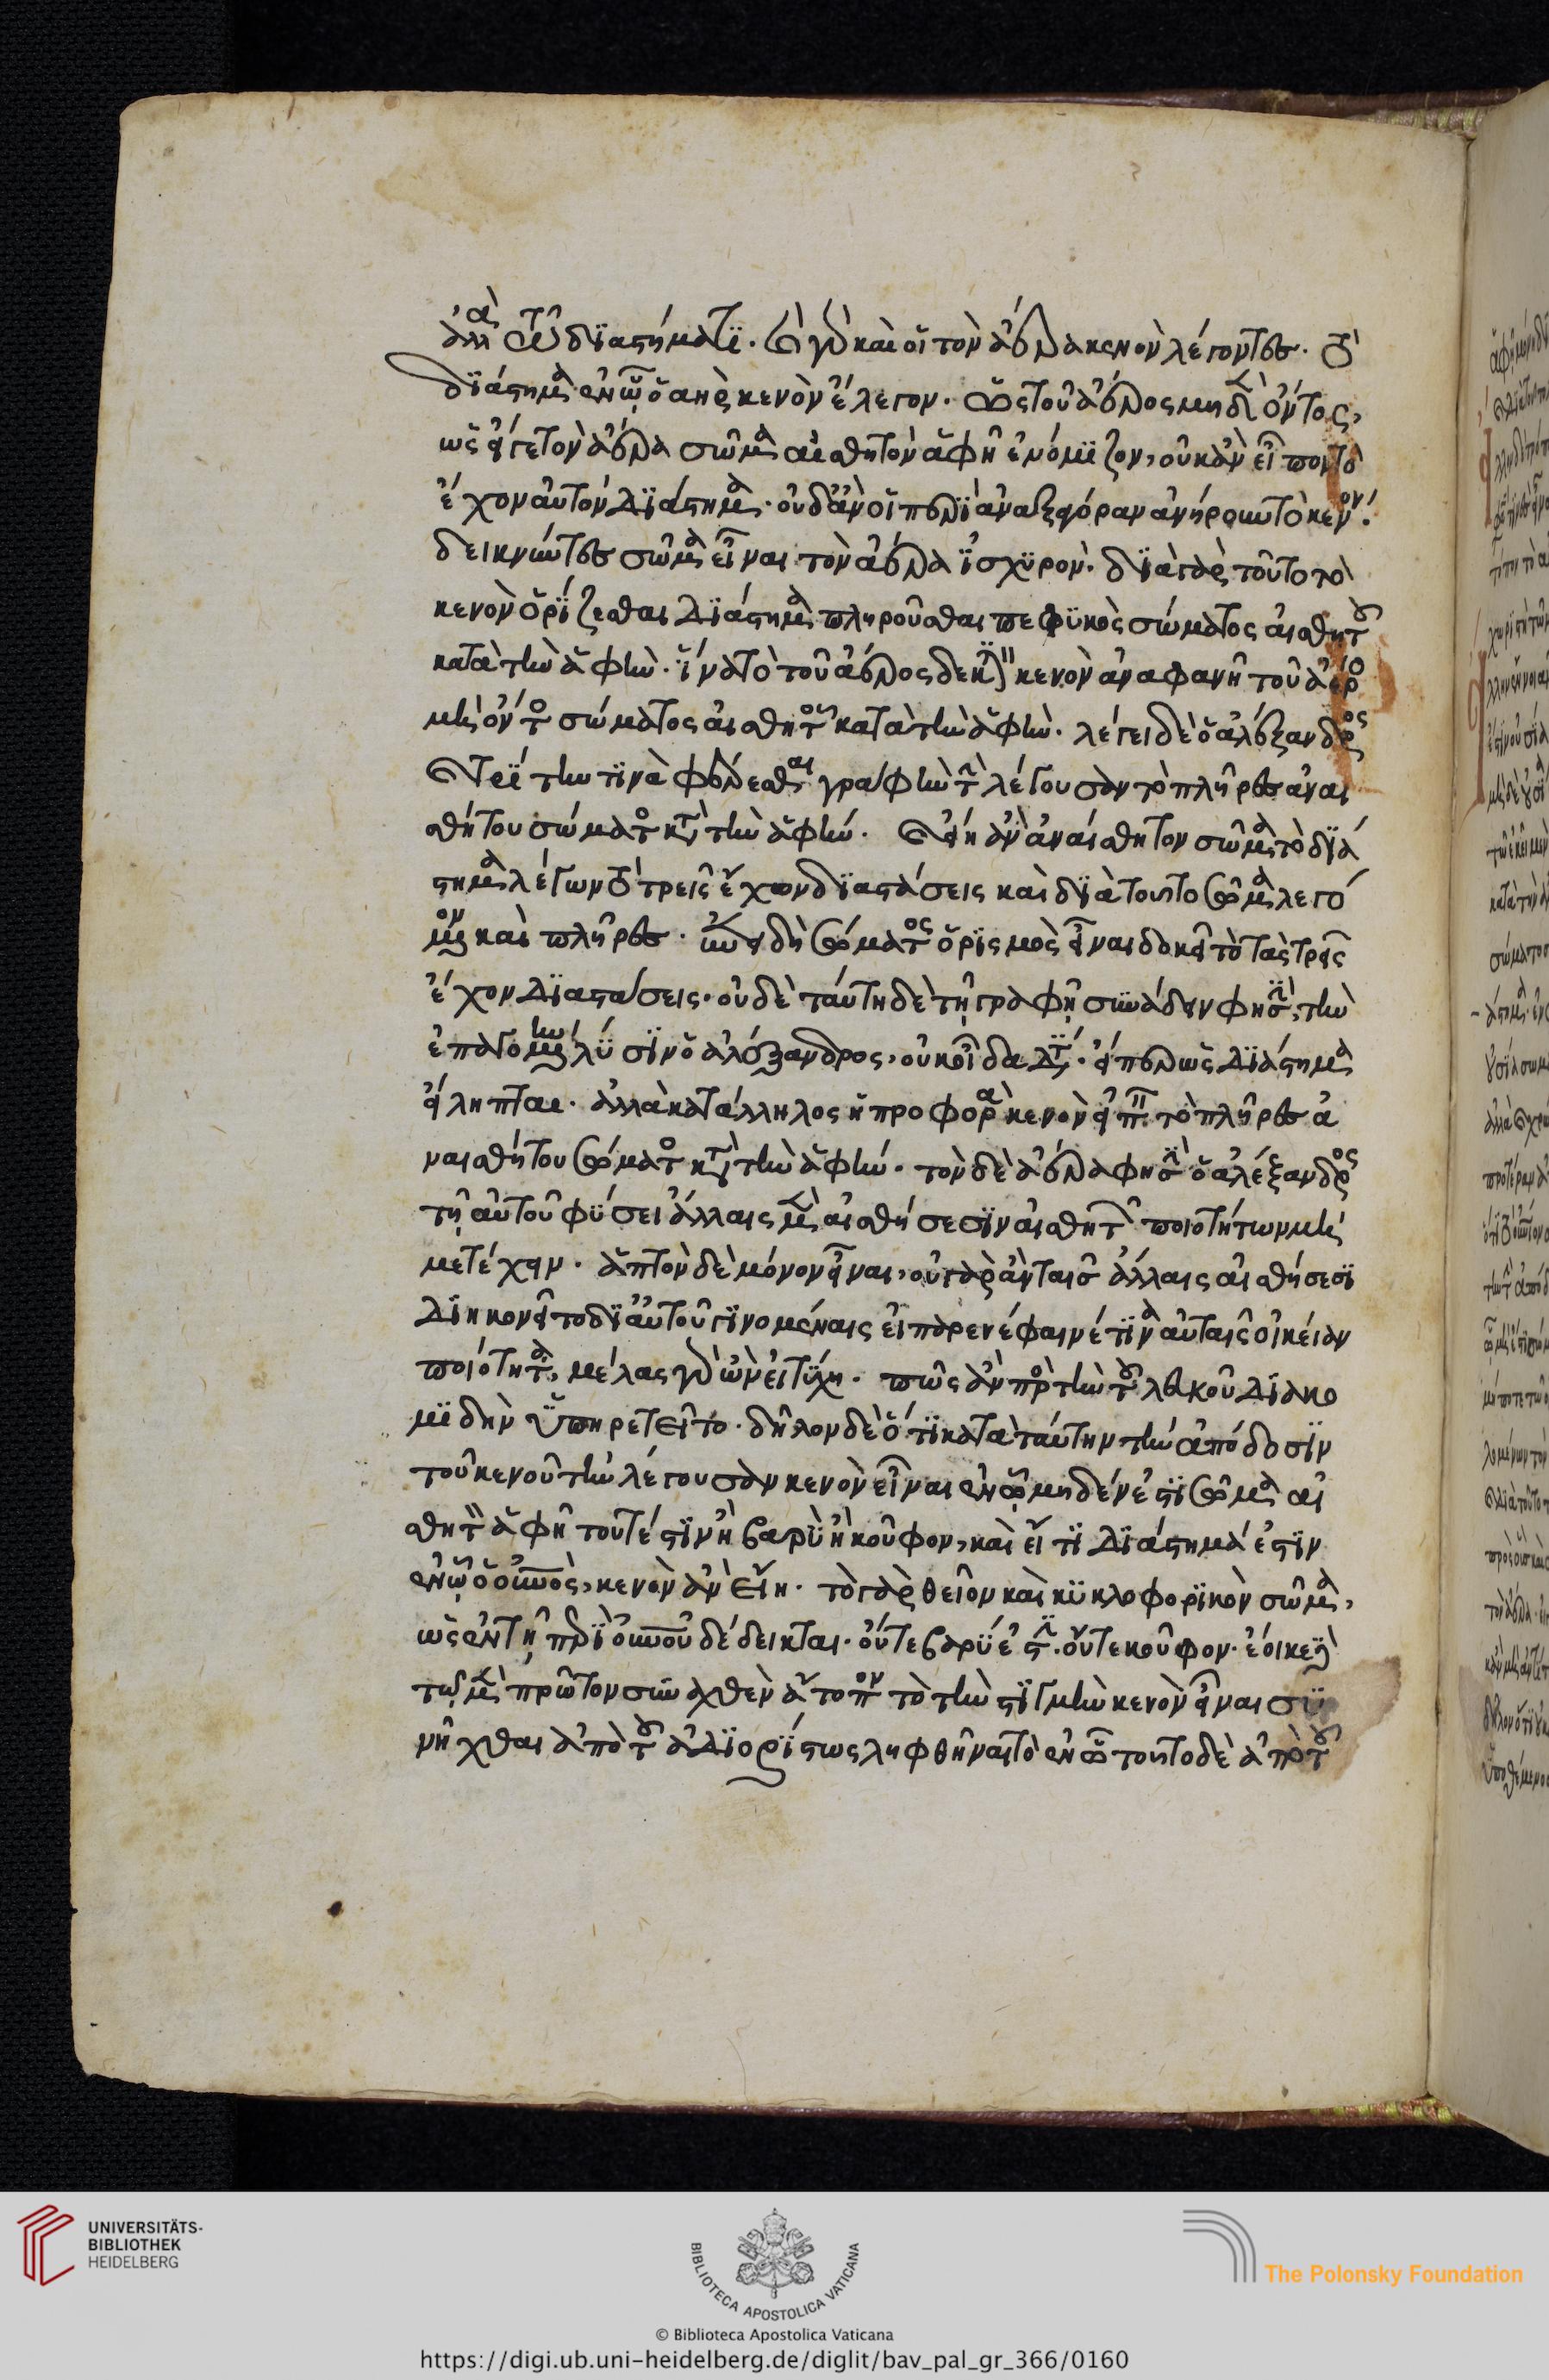 διάστημα ἐν ᾧ ὁ ἀὴρ κενὸν ἔλεγον. τοῦ ἀέρος μηδὲ ὄντος,
ὡς εἴγε τὸν ἀέρα σῶμα αἰσθητὸν ἁφῇ ἐνόμιζον, οὐκ ἂν εἶπον τὸ
ἔχον αὐτὸν διάστημα. οὐδ' ἂν οἱ περὶ ἀναξαγόραν ἀνήρουν τὸ κενόν.
δεικνύντες σῶμα εἶναι τὸν ἀέρα ἰσχυρόν. διὰ γὰρ τοῦτο τὸ
κενὸν ὁρίζεσθαι διάστημα πληροῦσθαι πεφυκὸς σώματος αἰσθητοῦ
κατὰ τὴν ἁφήν. ἵνα τὸ τοῦ ἀέρος δεκτικὸν κενὸν ἀναφανῇ τοῦ ἀέρος
μὴ ὄντος σώματος αἰσθητοῦ κατὰ τὴν ἁφήν. λέγει δὲ ὁ ἀλέξανδρος
τινα φέρεσθαι γραφὴν τὴν λέγουσαν τὸ πλῆρες ἀναι
σθήτου σώματος κατὰ τὴν ἁφήν. εἴη ἂν ἀναίσθητον σῶμα τὸ διά
στημα λέγων τὸ τρεῖς ἔχον διαστάσεις καὶ διὰ τοῦτο σῶμα λεγό
μενον καὶ πλῆρες. δὴ σώματος ὁρισμὸς εἶναι δοκεῖ τὸ τὰς τρεῖς
ἔχον διαστάσεις. οὐδὲ ταύτῃ δὲ τῇ γραφῇ συνάδειν φησὶ τὴν
ἐπαγομένην λύσιν ὁ ἀλέξανδρος, οὐκ οἶδα διατί. εἴπερ ὡς διάστημα
εἴληπται. ἀλλὰ κατάλληλος ἡ προφορὰ κενὸν εἰπεῖν τὸ πλῆρες ἀ
ναισθήτου σώματος κατὰ τὴν ἁφήν. τὸν δὲ ἀέρα φησὶν ὁ ἀλέξανδρος
τῇ αὐτοῦ φύσει ἄλλαις μὲν αἰσθήσεσιν αἰσθητῶν ποιοτήτων μὴ
μετέχειν. ἁπτὸν δὲ μόνον εἶναι, οὐ γὰρ ἂν ταῖς ἄλλαις αἰσθήσεσι
διηκονεῖτο δι' αὐτοῦ γινομέναις εἰ παρενέφαινέ τινα αὐταῖς οἰκείαν
ποιότητα, μέλας γὰρ ὢν εἰ τύχῃ. πῶς ἂν πρὸς τὴν τοῦ λευκοῦ διακο
μιδὴν ὑπηρετεῖτο. δῆλον δὲ ὅτι κατὰ ταύτην τὴν ἀπόδοσιν
τοῦ κενοῦ τὴν λέγουσαν κενὸν εἶναι ἐν ᾧ μηδέν ἐστι σῶμα αἰ
σθητὸν ἁφῇ τουτέστιν ἢ βαρὺ ἢ κοῦφον, καὶ εἴ τι διάστημά ἐστιν
ἐν ᾧ ὁ οὐρανός, κενὸν ἂν εἴη. τὸ γὰρ θεῖον καὶ κυκλοφορικὸν σῶμα,
ὡς ἐν τῇ περὶ οὐρανοῦ δέδεικται. οὔτε βαρύ ἐστιν. οὔτε κοῦφον. ἔοικε δὲ
τὸ μὲν πρῶτον συναχθὲν ἄτοπον τὸ τὴν στιγμὴν κενὸν εἶναι συ
νῆχθαι ἀπὸ τοῦ ἀδιορίστως ληφθῆναι τὸ ἐν ᾧ τοῦτο δὲ ἀπὸ τοῦ
UNIVERSITÄTS-
BIBLIOTHEK
HEIDELBERG
BIBLIOTECA APOSTOLICA VATICANA
The Polonsky Foundation
© Biblioteca Apostolica Vaticana
https://digi.ub.uni-heidelberg.de/diglit/bav_pal_gr_366/0160